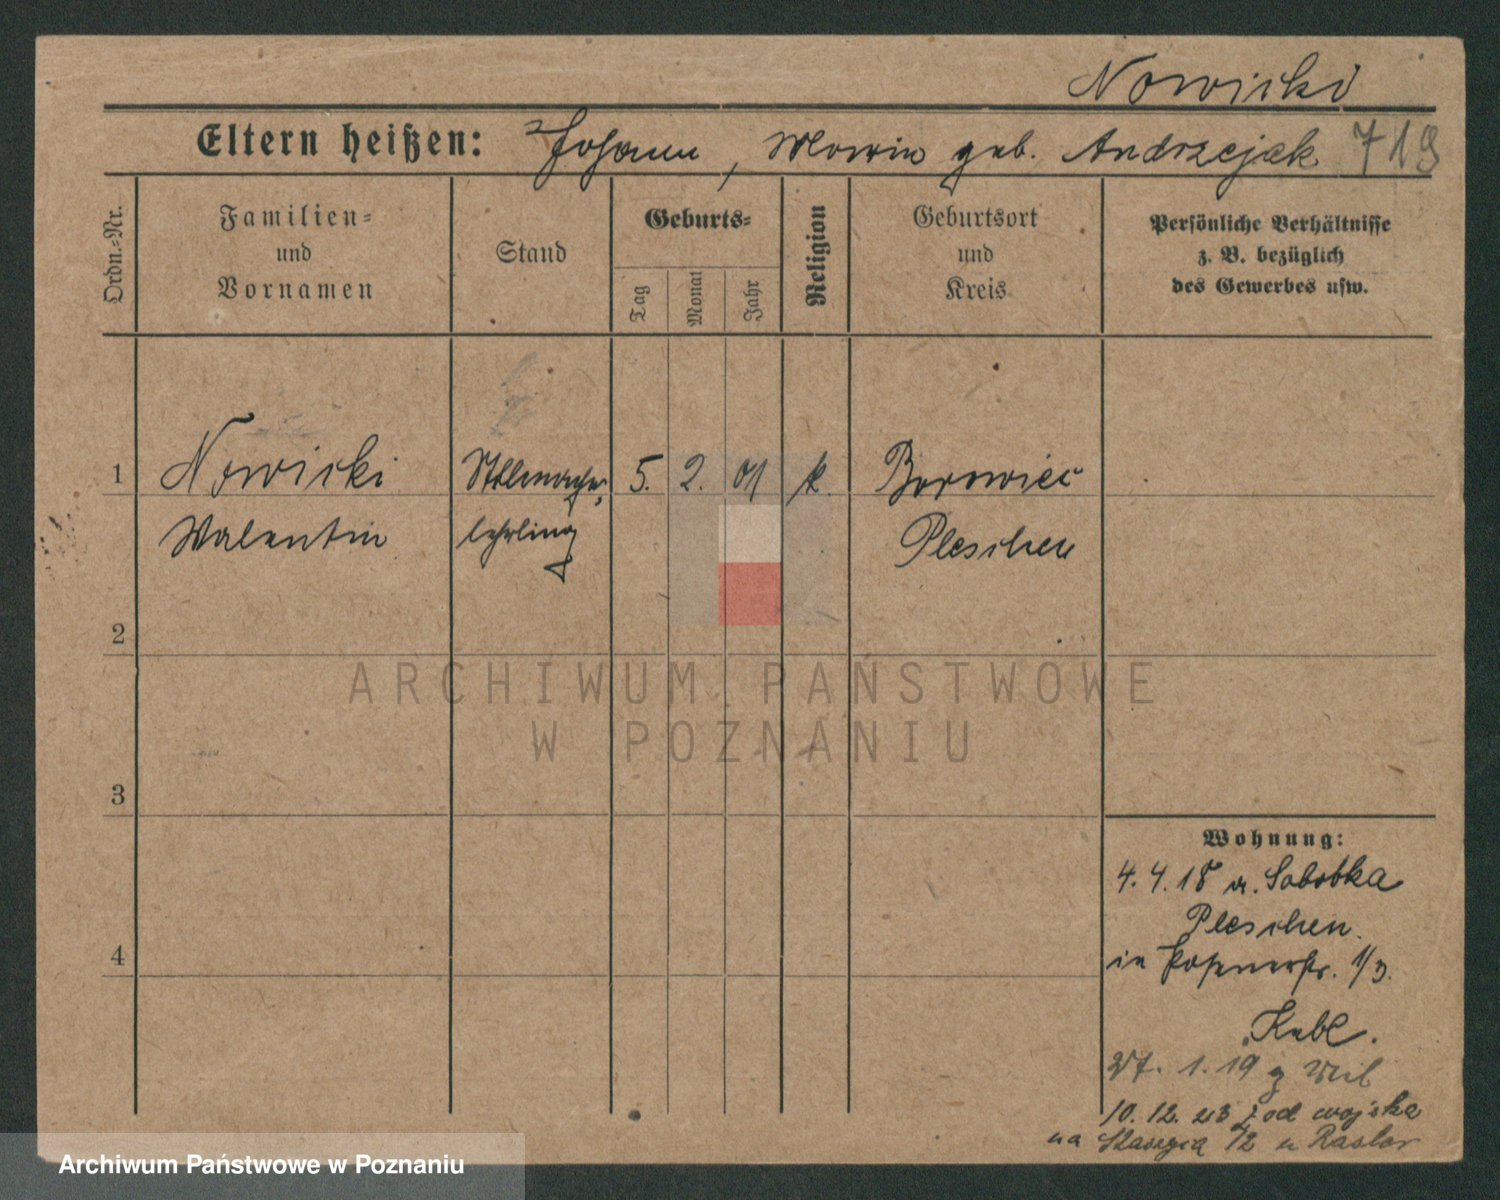 Nowicki
Eltern heißen: Johann, Maria geb. Andrzejak 719
Ordn.-Nr.
Familien- und Vornamen
Stand
Geburts-
Tag
Monat
Jahr
Religion
Geburtsort und Kreis
Persönliche Verhältnisse
z. B. bezüglich
des Gewerbes usw.
1 Nowicki Stellmacher- 5. 2. 01 k. Borowiec
Walentin lehrling Pleschen
2
3
4
Wohnung:
4. 4. 18 v. Sobotka
Pleschen.
in Posenerstr. 1/3.
Kabl.
27. 1. 19 z Mil
10. 12. 23 z od wojska
na
ARCHIWUM PAŃSTWOWE
W POZNANIU
Archiwum Państwowe w Poznaniu